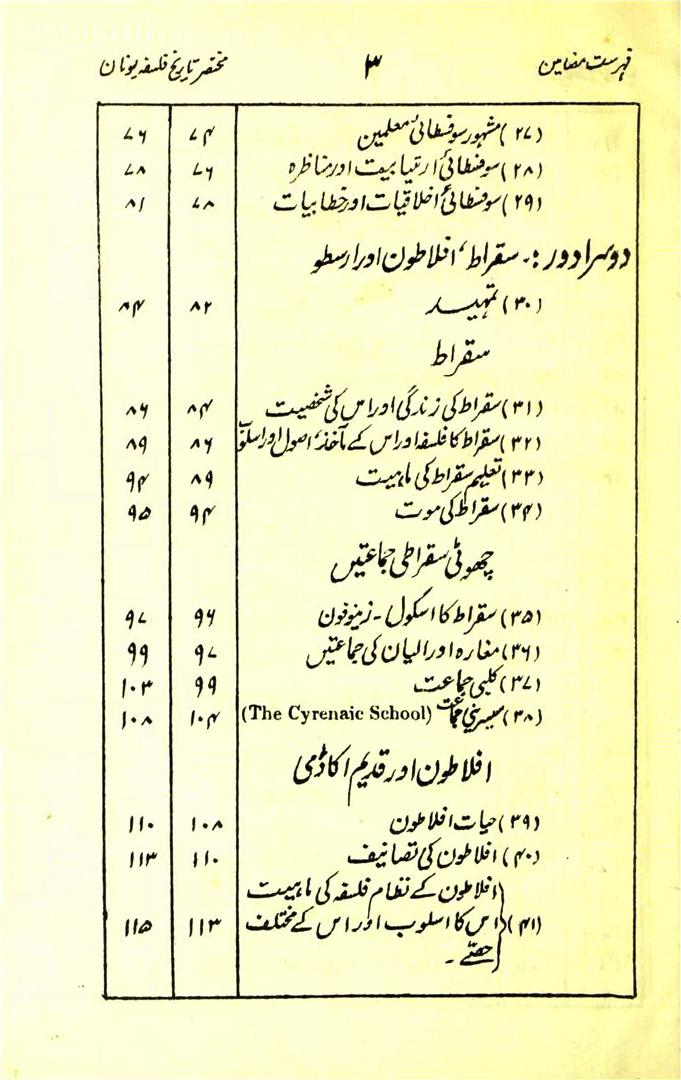 فہرست مضامین ۳ مختصر تاریخ فلسفہ یونان
(۲۷) مشہور سوفسطائی معلمین ۷۴ ۷۶
(۲۸) سوفسطائی ارتیابیت اور مناظرہ ۷۶ ۷۸
(۲۹) سوفسطائی اخلاقیات اور خطابیات ۷۸ ۸۱
دوسرا دور:۔ سقراط، افلاطون اور ارسطو
(۳۰) تمہید ۸۲ ۸۴
سقراط
(۳۱) سقراط کی زندگی اور اس کی شخصیت ۸۴ ۸۶
(۳۲) سقراط کا فلسفہ اور اس کے مآخذ، اصول اور اسلوب ۸۶ ۸۹
(۳۳) تعلیم سقراط کی ماہیت ۸۹ ۹۴
(۳۴) سقراط کی موت ۹۴ ۹۵
چھوٹی سقراطی جماعتیں
(۳۵) سقراط کا اسکول ۔ زینوفون ۹۶ ۹۷
(۳۶) مغارہ اور الیان کی جماعتیں ۹۷ ۹۹
(۳۷) کلبی جماعت ۹۹ ۱۰۳
(۳۸) سیرینی جماعت (The Cyrenaic School) ۱۰۴ ۱۰۸
افلاطون اور قدیم اکاڈمی
(۳۹) حیات افلاطون ۱۰۸ ۱۱۰
(۴۰) افلاطون کی تصانیف ۱۱۰ ۱۱۳
افلاطون کے نظام فلسفہ کی ماہیت
(۴۱) اس کا اسلوب اور اس کے مختلف ۱۱۳ ۱۱۵
حصّے ۔